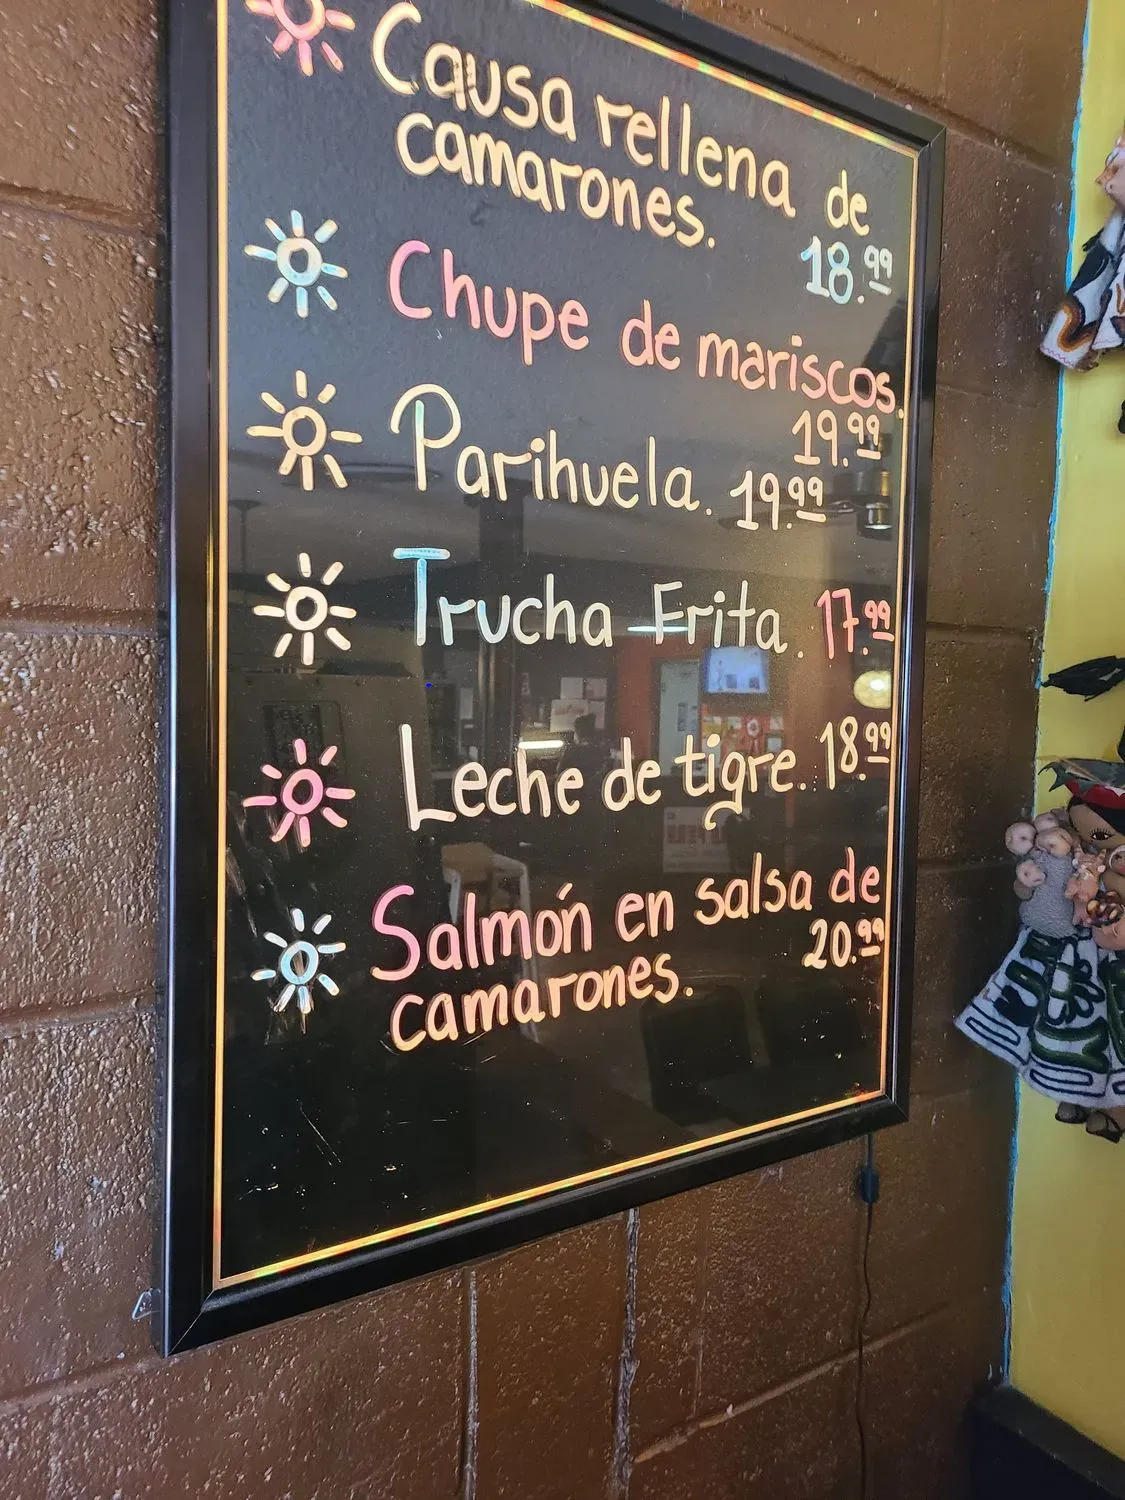 Causa rellena de
camarones.
18.99
Chupe de mariscos.
19.99
Parihuela. 19.99
Trucha Frita. 17.99
Leche de tigre. 18.99
Salmón en salsa de
camarones. 20.99